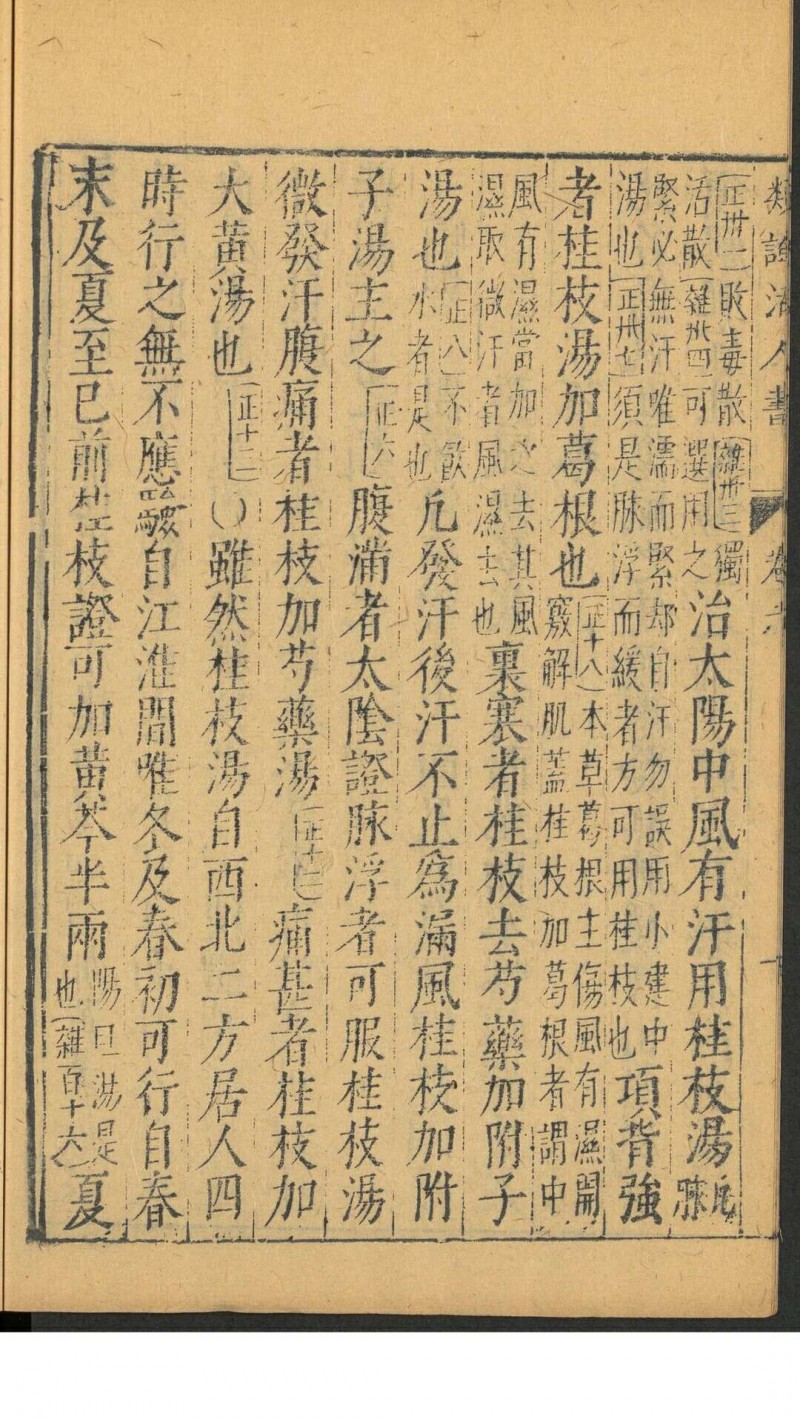 類證活人書 卷六 十
(正卅二)敗毒散(雜卅三)獨活散(雜卅四)可選用之治太陽中風有汗用桂枝湯凡脉
緊必無汗唯濡而緊却自汗勿誤用小建中湯也(正卅七)須是脉浮而緩者方可用桂枝也項背強
者桂枝湯加葛根也(正十八)本草葛根主傷風有濕開竅解肌蓋桂枝加葛根者謂中
風有濕當加之去其風濕取微汗者風濕去也裏寒者桂枝去芍藥加附子
湯也(正八)不飲水者是也凡發汗後汗不止爲漏風桂枝加附
子湯主之(正六)腹滿者太陰證脉浮者可服桂枝湯
微發汗腹痛者桂枝加芍藥湯(正十二)痛甚者桂枝加
大黃湯也(正十三)()雖然桂枝湯自西北二方居人四
時行之無不應驗自江淮間唯冬及春初可行自春
末及夏至已前桂枝證可加黃芩半兩陽旦湯是也(雜百十六)夏